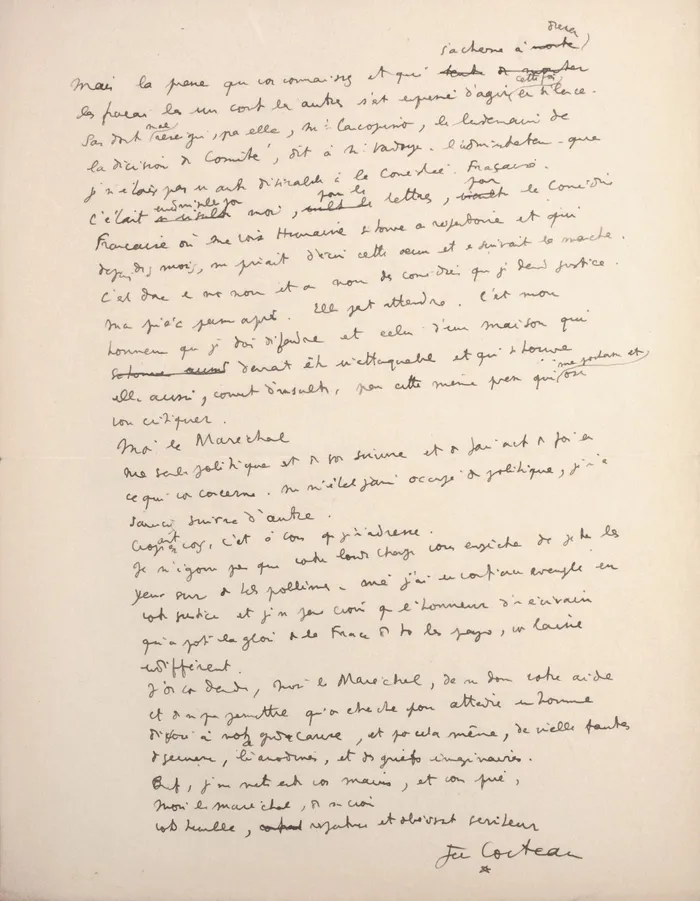 s'acharne à
Mais la presse que vous connaissez et qui
les français les uns contre les autres s'est d'agir cette fois en silence.
Sans doute par elle, Mr. Iacopino, le lendemain de
la décision du Comité, dit à Mr. Vaudoyer, l'administrateur que
je n'étais pas un auteur désirable à la Comédie Française.
C'était moi, pour les lettres, pour la Comédie
Française où Une voix Humaine se trouve au répertoire et qui
depuis des mois, cette œuvre et en suivait la marche.
C'est donc en mon nom et au nom des comédiens que je demande justice.
Ma pièce passe après. Elle peut attendre. C'est mon
honneur que je dois défendre et celui d'une maison qui
devrait être inattaquable et qui se trouve
elle aussi, couverte d'insultes, par cette même presse qui ose
vous critiquer.
Monsieur le Maréchal
Ma seule politique est de vous suivre et de faire acte de foi en
ce qui vous concerne. Ne m'étant jamais occupé de politique, je n'ai
su en suivre d'autre.
Croyant en vous, c'est à vous que je m'adresse.
Je n'ignore pas que votre lourde charge vous empêche de jeter les
yeux sur de tels problèmes – mais j'ai une confiance aveugle en
votre justice et je ne peux croire que l'honneur d'un écrivain
qui a porté la gloire de la France dans tous les pays, vous laisse
indifférent.
J'ose vous demander, Monsieur le Maréchal, de me donner votre aide
et de ne pas permettre qu'on cherche pour atteindre un homme
dévoué à notre grande cause, et par cela même, de vieilles fautes
de jeunesse, et des griefs imaginaires.
Bref, je me mets entre vos mains, et vous prie,
Monsieur le maréchal, de me croire
votre humble, respectueux et obéissant serviteur
Jean Cocteau
*